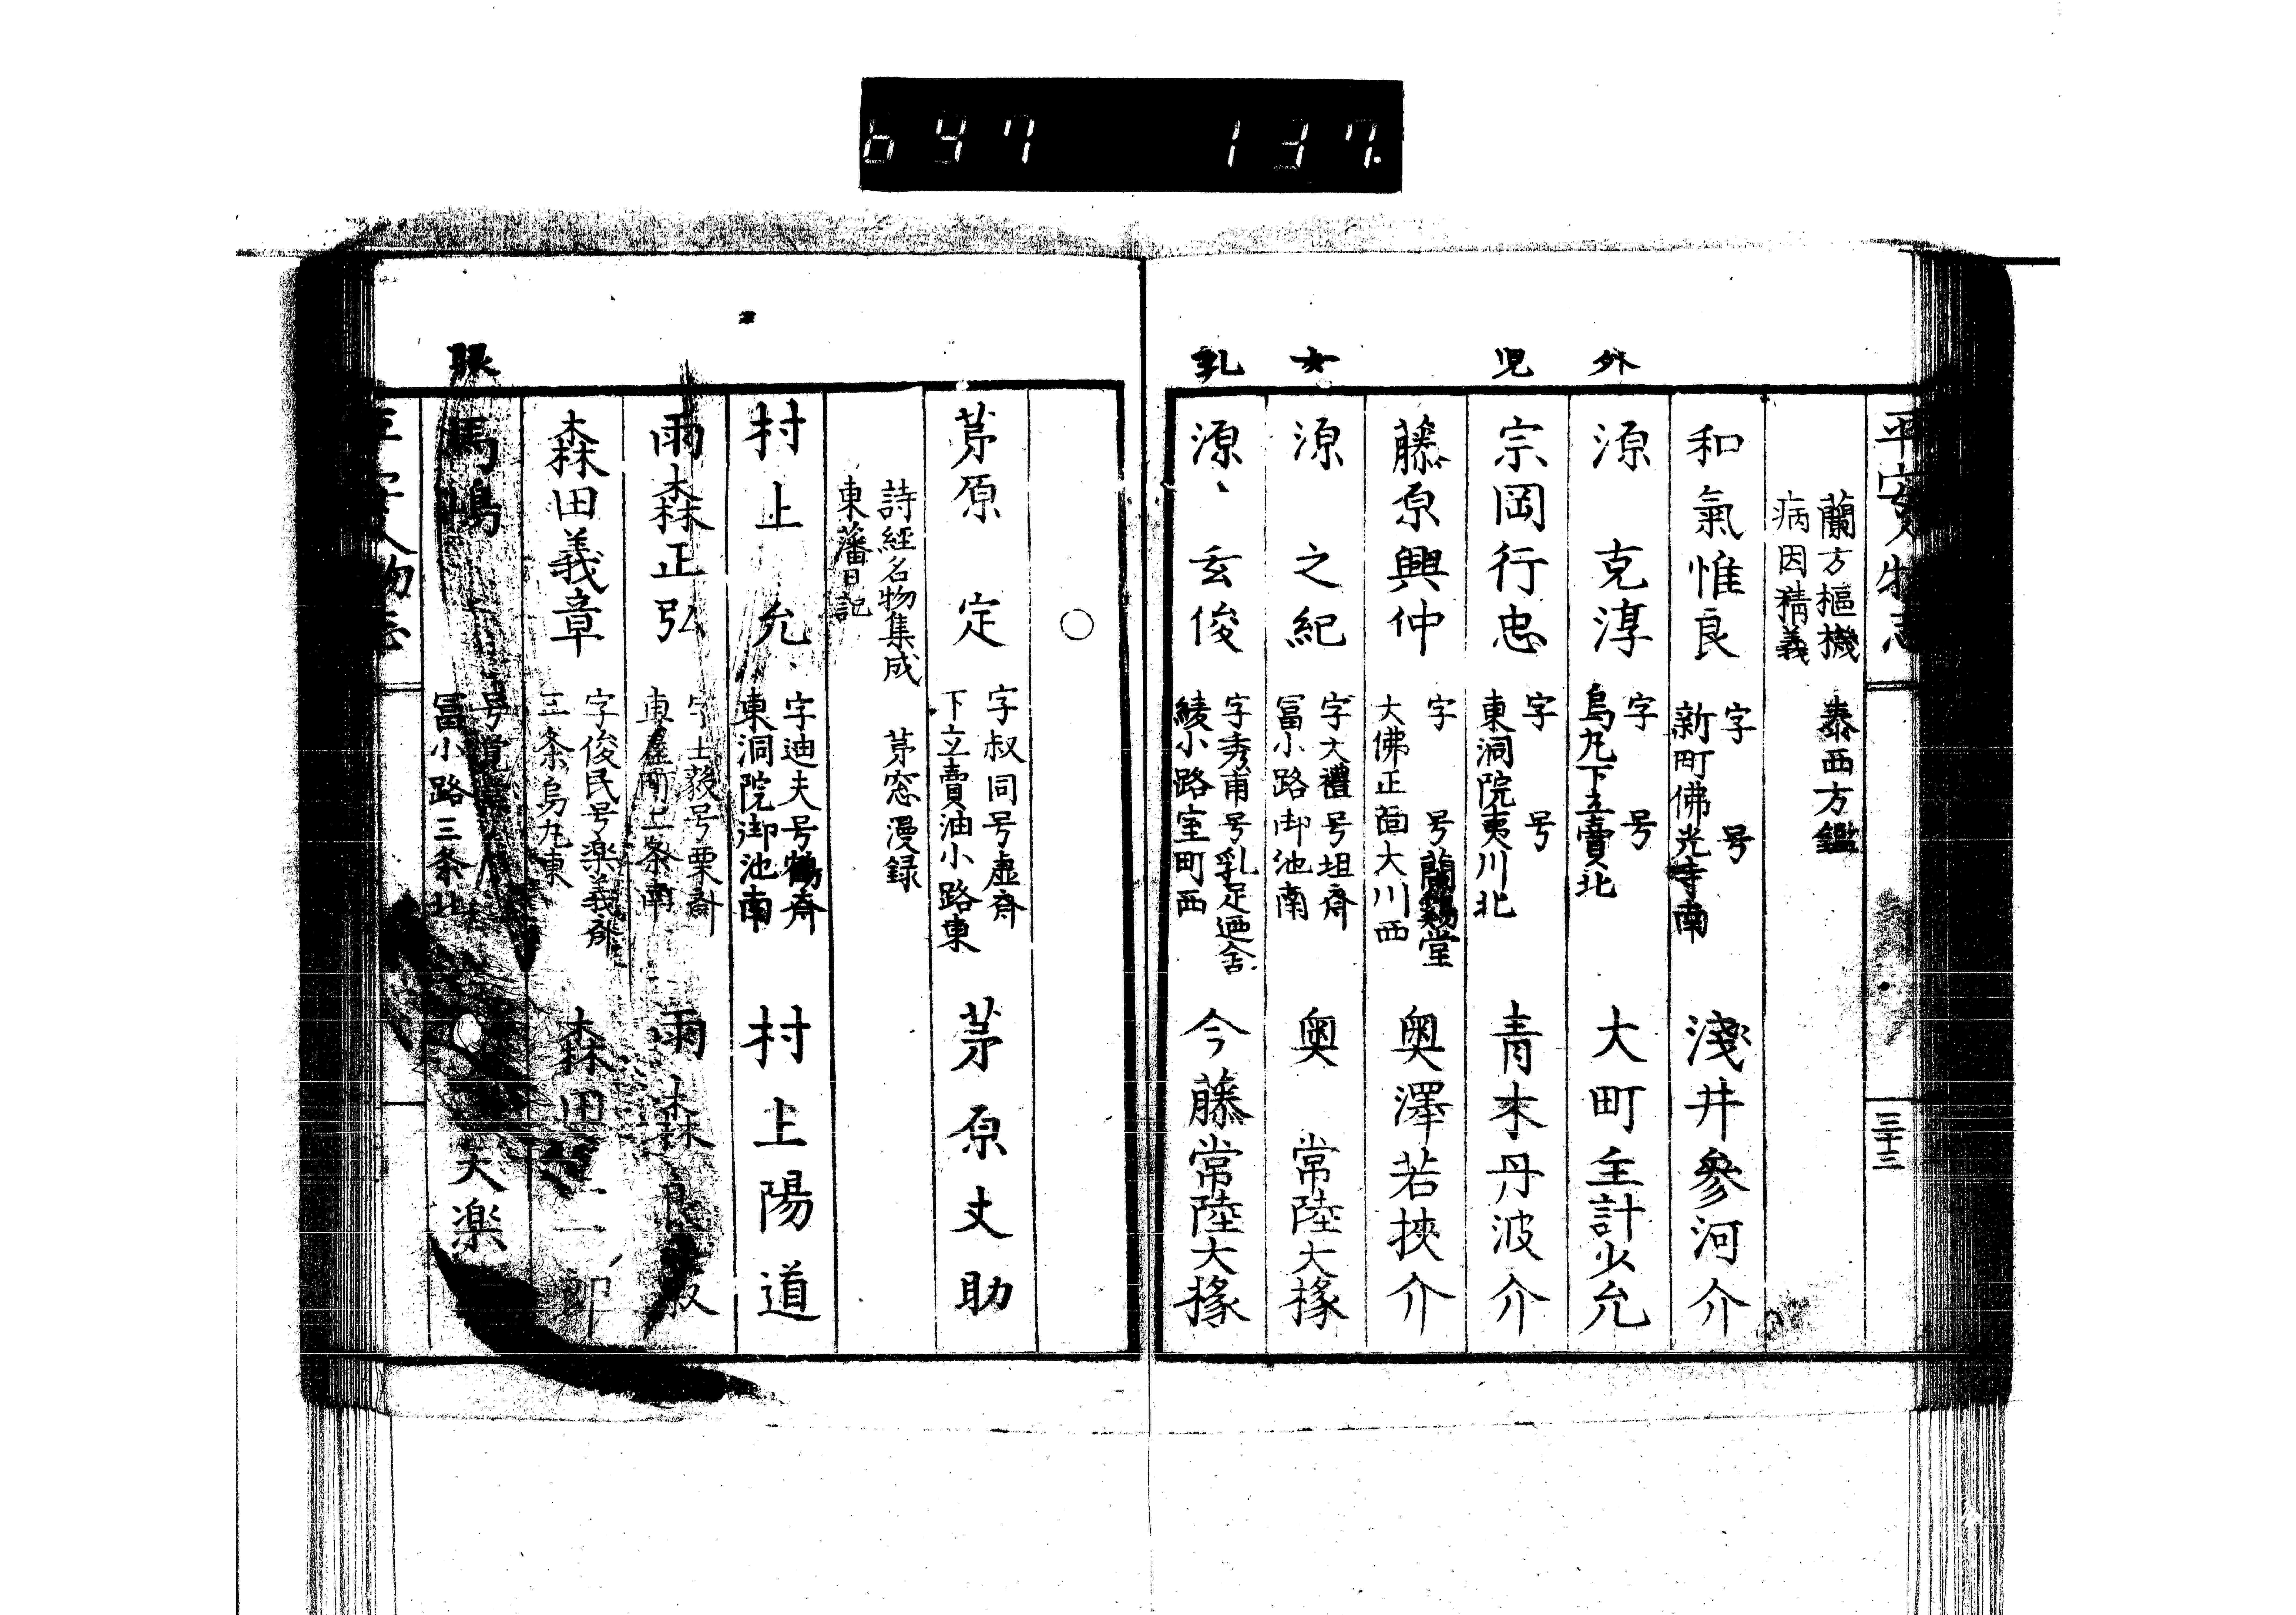 647 137
平安人物志
三十三
蘭方樞機 泰西方鑑
病因精義
和氣惟良 字 号
新町佛光寺南 淺井參河介
外
源 克淳 字 号
烏丸下立賣北 大町主計少允
児
宗岡行忠 字 号
東洞院夷川北 青木丹波介
藤原興仲 字 号蘭鷄堂
大佛正面大川西 奥澤若挾介
女
源 之紀 字大禮号坦齋
冨小路御池南 奥 常陸大掾
乳
源 玄俊 字秀甫号乳足迺舎
綾小路室町西 今藤常陸大掾
〇
茅原 定 字叔同号虚斎
下立賣油小路東 茅原丈助
詩經名物集成 茅窓漫録
東藩日記
村上 允 字迪夫号鶴斎
東洞院御池南 村上陽道
雨森正弘 字士毅号栗斎
車屋町二条南 雨森良叔
森田義章 字俊民号楽義斎
三条烏丸東 森田 郎
眼
馬嶋 号
冨小路三条北 大楽
平安人物志